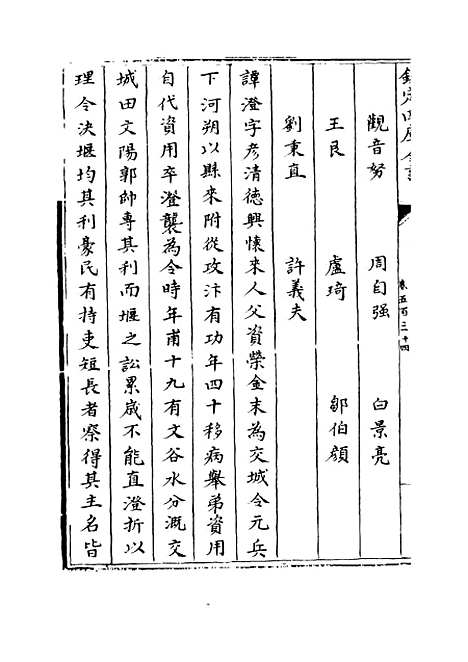 欽定四庫全書
卷五百三十四
觀音努　周自强　白景亮
王艮　盧琦　鄒伯顔
劉秉直　許義夫
譚澄字彥清徳興懐来人父資榮金末為交城令元兵
下河朔以縣来附從攻汴有功年四十移病舉弟資用
自代資用卒澄襲為令時年甫十九有文谷水分溉交
城田文陽郭帥專其利而堰之訟累歳不能直澄折以
理令決堰均其利豪民有持吏短長者察得其主名皆